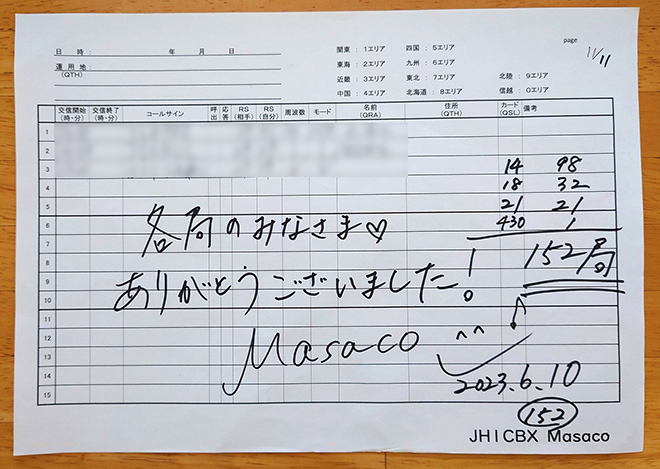 page
11/11
日時: 年 月 日
運用地:
(QTH)
関東:1エリア 四国:5エリア
東海:2エリア 九州:6エリア
近畿:3エリア 東北:7エリア 北陸:9エリア
中国:4エリア 北海道:8エリア 信越:0エリア
交信開始(時・分) 交信終了(時・分) コールサイン 呼出 応答 RS(相手) RS(自分) 周波数 モード 名前(QRA) 住所(QTH) カード(QSL) 備考
1
2
3 14 98
4 18 32
5 21 21
6 430 1
7 各局のみなさま♡
8 152局
9 ありがとうございました!
10
11
12 Masaco ^^
13
14 2023.6.10
15
152
JH1CBX Masaco